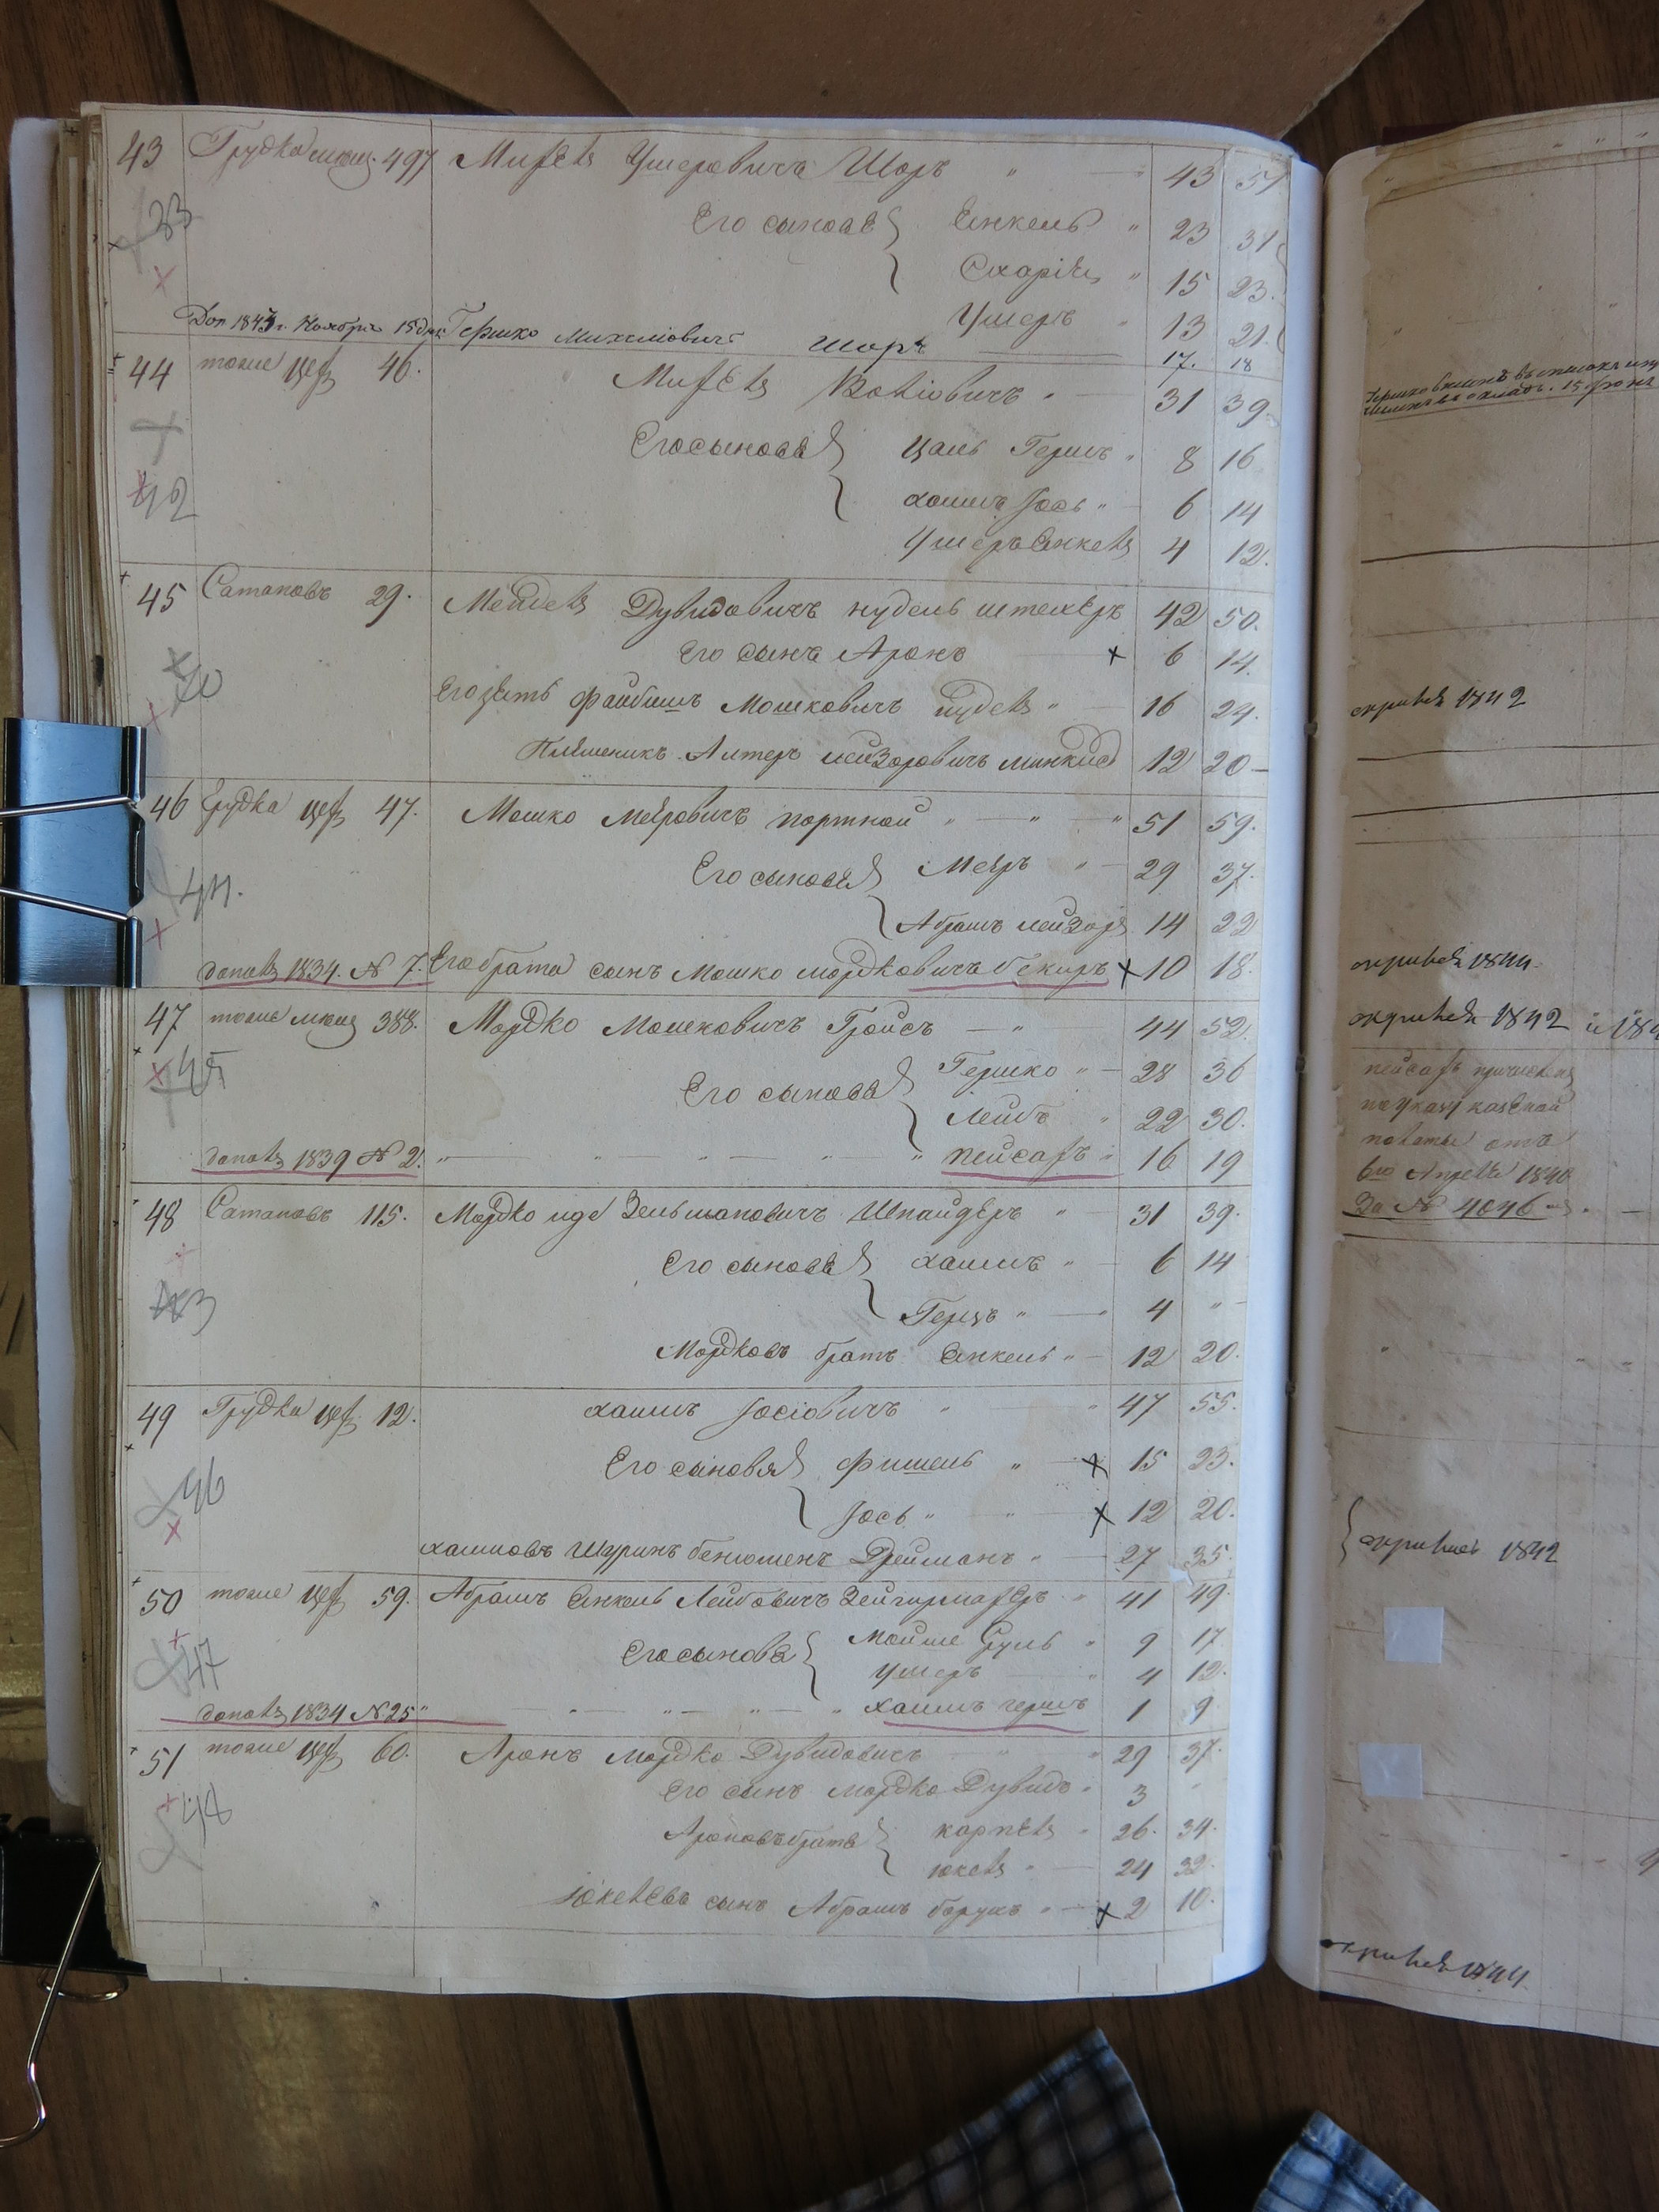 43 Грудка мющ. 497 Михель Ушеровичъ Шоръ " — " 43 51
33 Его сыновя Еинкель " 23 31
Сахарія " 15 23.
Ушеръ " 13 21.
Доп 1843 г. Ноября 15 дня Гершко Михелiовичъ Шоръ — 17. 18
44 тоже цех 46. Михель Волiовичъ " — 31 39
Его сыновя Цаль Гершъ " 8 16
42 хаимъ Іось " 6 14
Ушеръ Енкель 4 12.
45 Сатановъ 29. Мендель Дувидовичъ нудель штехеръ 42 50.
Его сынъ Аронъ х 6 14.
40 Его зять Файбишъ Мошковичъ нудель " — 16 24.
Плѣменикъ Алтеръ лейзоровичъ минкис 12 20 —
46 Грудка цех 47. Мошко меѣровичъ портной " — " — " 51 59.
44. Его сыновя Меѣръ " — 29 37.
Абрамъ лейзоръ 14 22
дополн 1834. № 7. Его брата сынъ Мошко мордковичъ бекиръ х 10 18.
47 тоже мющ 388. Мордко Мошковичъ Гройсъ — " 44 52.
45 Его сыновя Гершко " — 28 36
Лейбъ " 22 30.
дополн 1839 № 2. " — " — " — " — " пейсахъ " 16 19
48 Сатановъ 115. Мордко иде Зельмановичъ Шнайдеръ " 31 39.
Его сыновя хаимъ " — 6 14
43 Герцъ " — " 4 " —
Мордковъ братъ Еинкель " — 12 20.
49 Грудка цех 12. хаимъ Іосiовичъ " " 47 55.
46 Его сыновя Фишель " — х 15 23.
Іось " — " — х 12 20.
хаимовъ Шуринъ бенюменъ Дрейманъ " — 27 35.
50 тоже цех 59. Абрамъ Еинкель Лейбовичъ Зейгирмахеръ " 41 49.
47 Его сыновя Мойше Сруль " 9 17
Ушеръ — " 4 12.
дополн 1834 № 25 " " — " — " — " хаимъ гершъ 1 9
51 тоже цех 60. Аронъ Мордко Дувидовичъ " " 29 37.
48 Его сынъ мордко Дувидъ " 3
Ароновъ братя карпель " 26. 34.
юкель " — 24 32.
Юкелевъ сынъ Абрамъ борухъ " — х 2 10.
скрився 1842
скрився 1844.
скрився 1842 и 184
пейсахъ причислен
по указу казеной
полаты отъ
6го Апреля 1840
За № 4046
скрились 1842
скрився 1844.